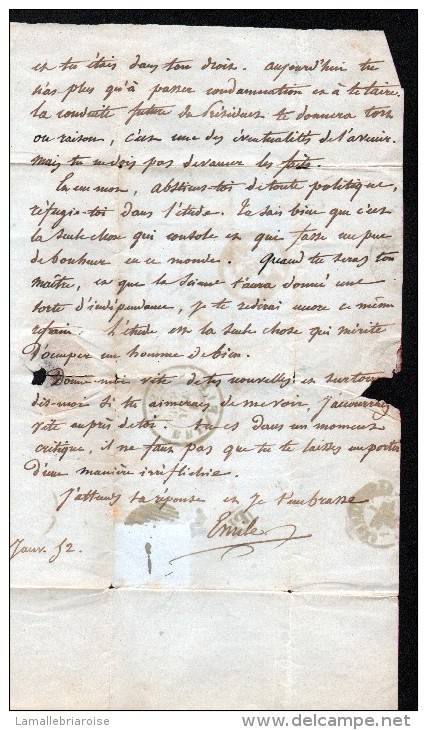 et tu étais dans ton droit. aujourd'hui tu
n'as plus qu'à passer condamnation et à te taire.
la conduite future du Président te donnera tort
ou raison, c'est une des éventualités de l'avenir.
mais tu ne dois pas devancer les faits.
En un mot, abstiens-toi de toute politique,
réfugie-toi dans l'étude. Tu sais bien que c'est
la seule chose qui console et qui fasse un peu
de bonheur en ce monde. Quand tu seras ton
maître, et que la Science t'aura donné une
sorte d'indépendance, je te redirai encore ce même
refrain. L'étude est la seule chose qui mérite
d'occuper un homme de bien.
Donne-moi vite de tes nouvelles et surtout
dis-moi si tu aimerais de me voir. J'accourrai
vite auprès de toi. Tu es dans un moment
critique, il ne faut pas que tu te laisses emporter
d'une manière irréfléchie.
J'attends ta réponse et je t'embrasse
Emile
Janv. 52.
Lamallebriaroise
www.delcampe.net